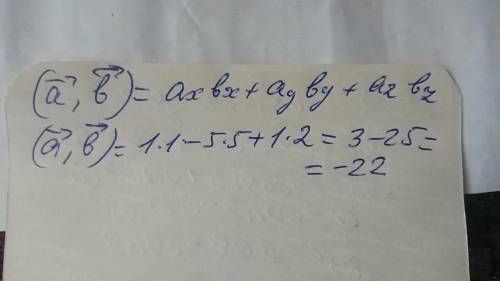 (a⃗, b⃗) = axbx + ayby + azbz
(a⃗, b⃗) = 1·1 - 5·5 + 1·2 = 3 - 25 =
= -22